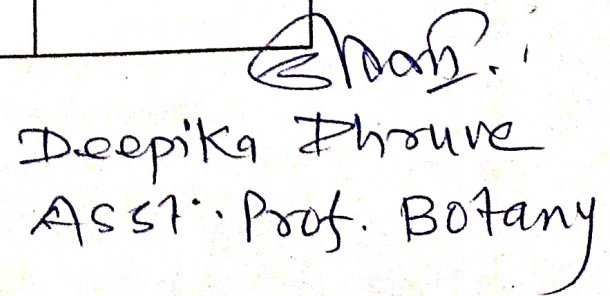 Deepika Dhruve
Asst. Prof. Botany